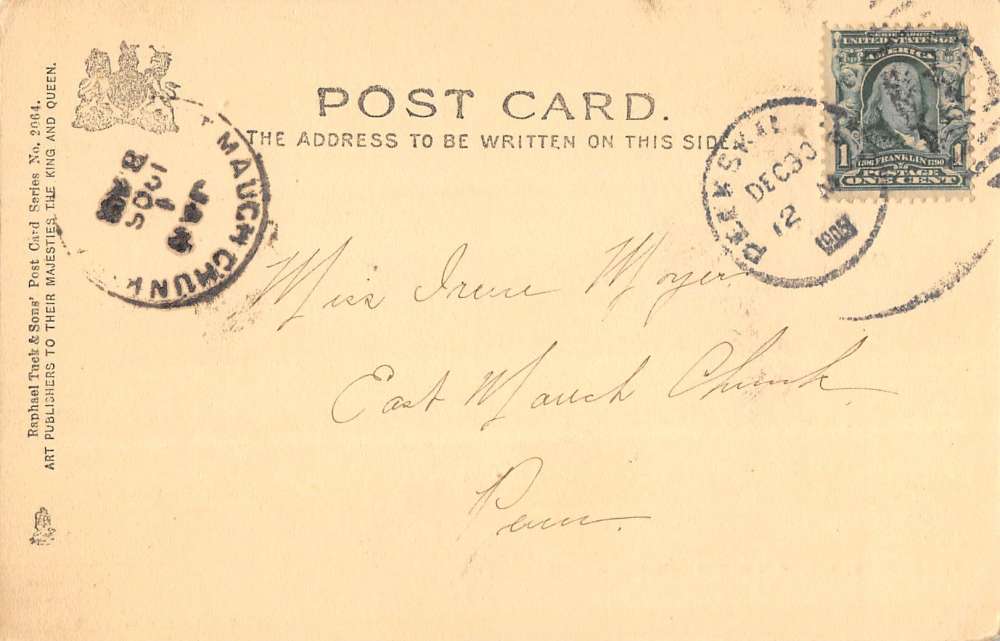 POST CARD.
THE ADDRESS TO BE WRITTEN ON THIS SIDE
Raphael Tuck & Sons' Post Card Series No. 2964.
ART PUBLISHERS TO THEIR MAJESTIES THE KING AND QUEEN.
MAUCH CHUNK
JAN
1
1905
8 AM
DEC 30
12
SERIES 1902
UNITED STATES OF
AMERICA
1706 FRANKLIN 1790
1 POSTAGE 1
ONE CENT
Miss Irene Moyer
East Mauch Chunk
Penn.